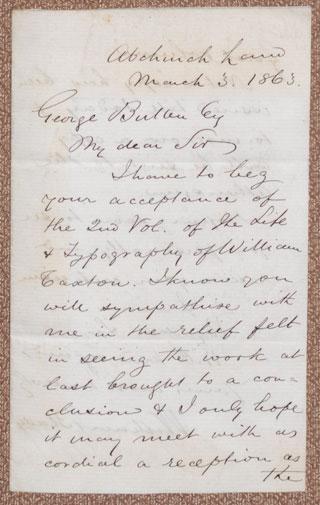 Abchurch Lane
March 3. 1863.
George Bullen Esq
My dear Sir
I have to beg
your acceptance of
the 2nd Vol. of the Life
& Typography of William
Caxton. I know you
will sympathise with
me in the relief felt
in seeing the work at
last brought to a con-
clusion & I only hope
it may meet with as
cordial a reception as
the